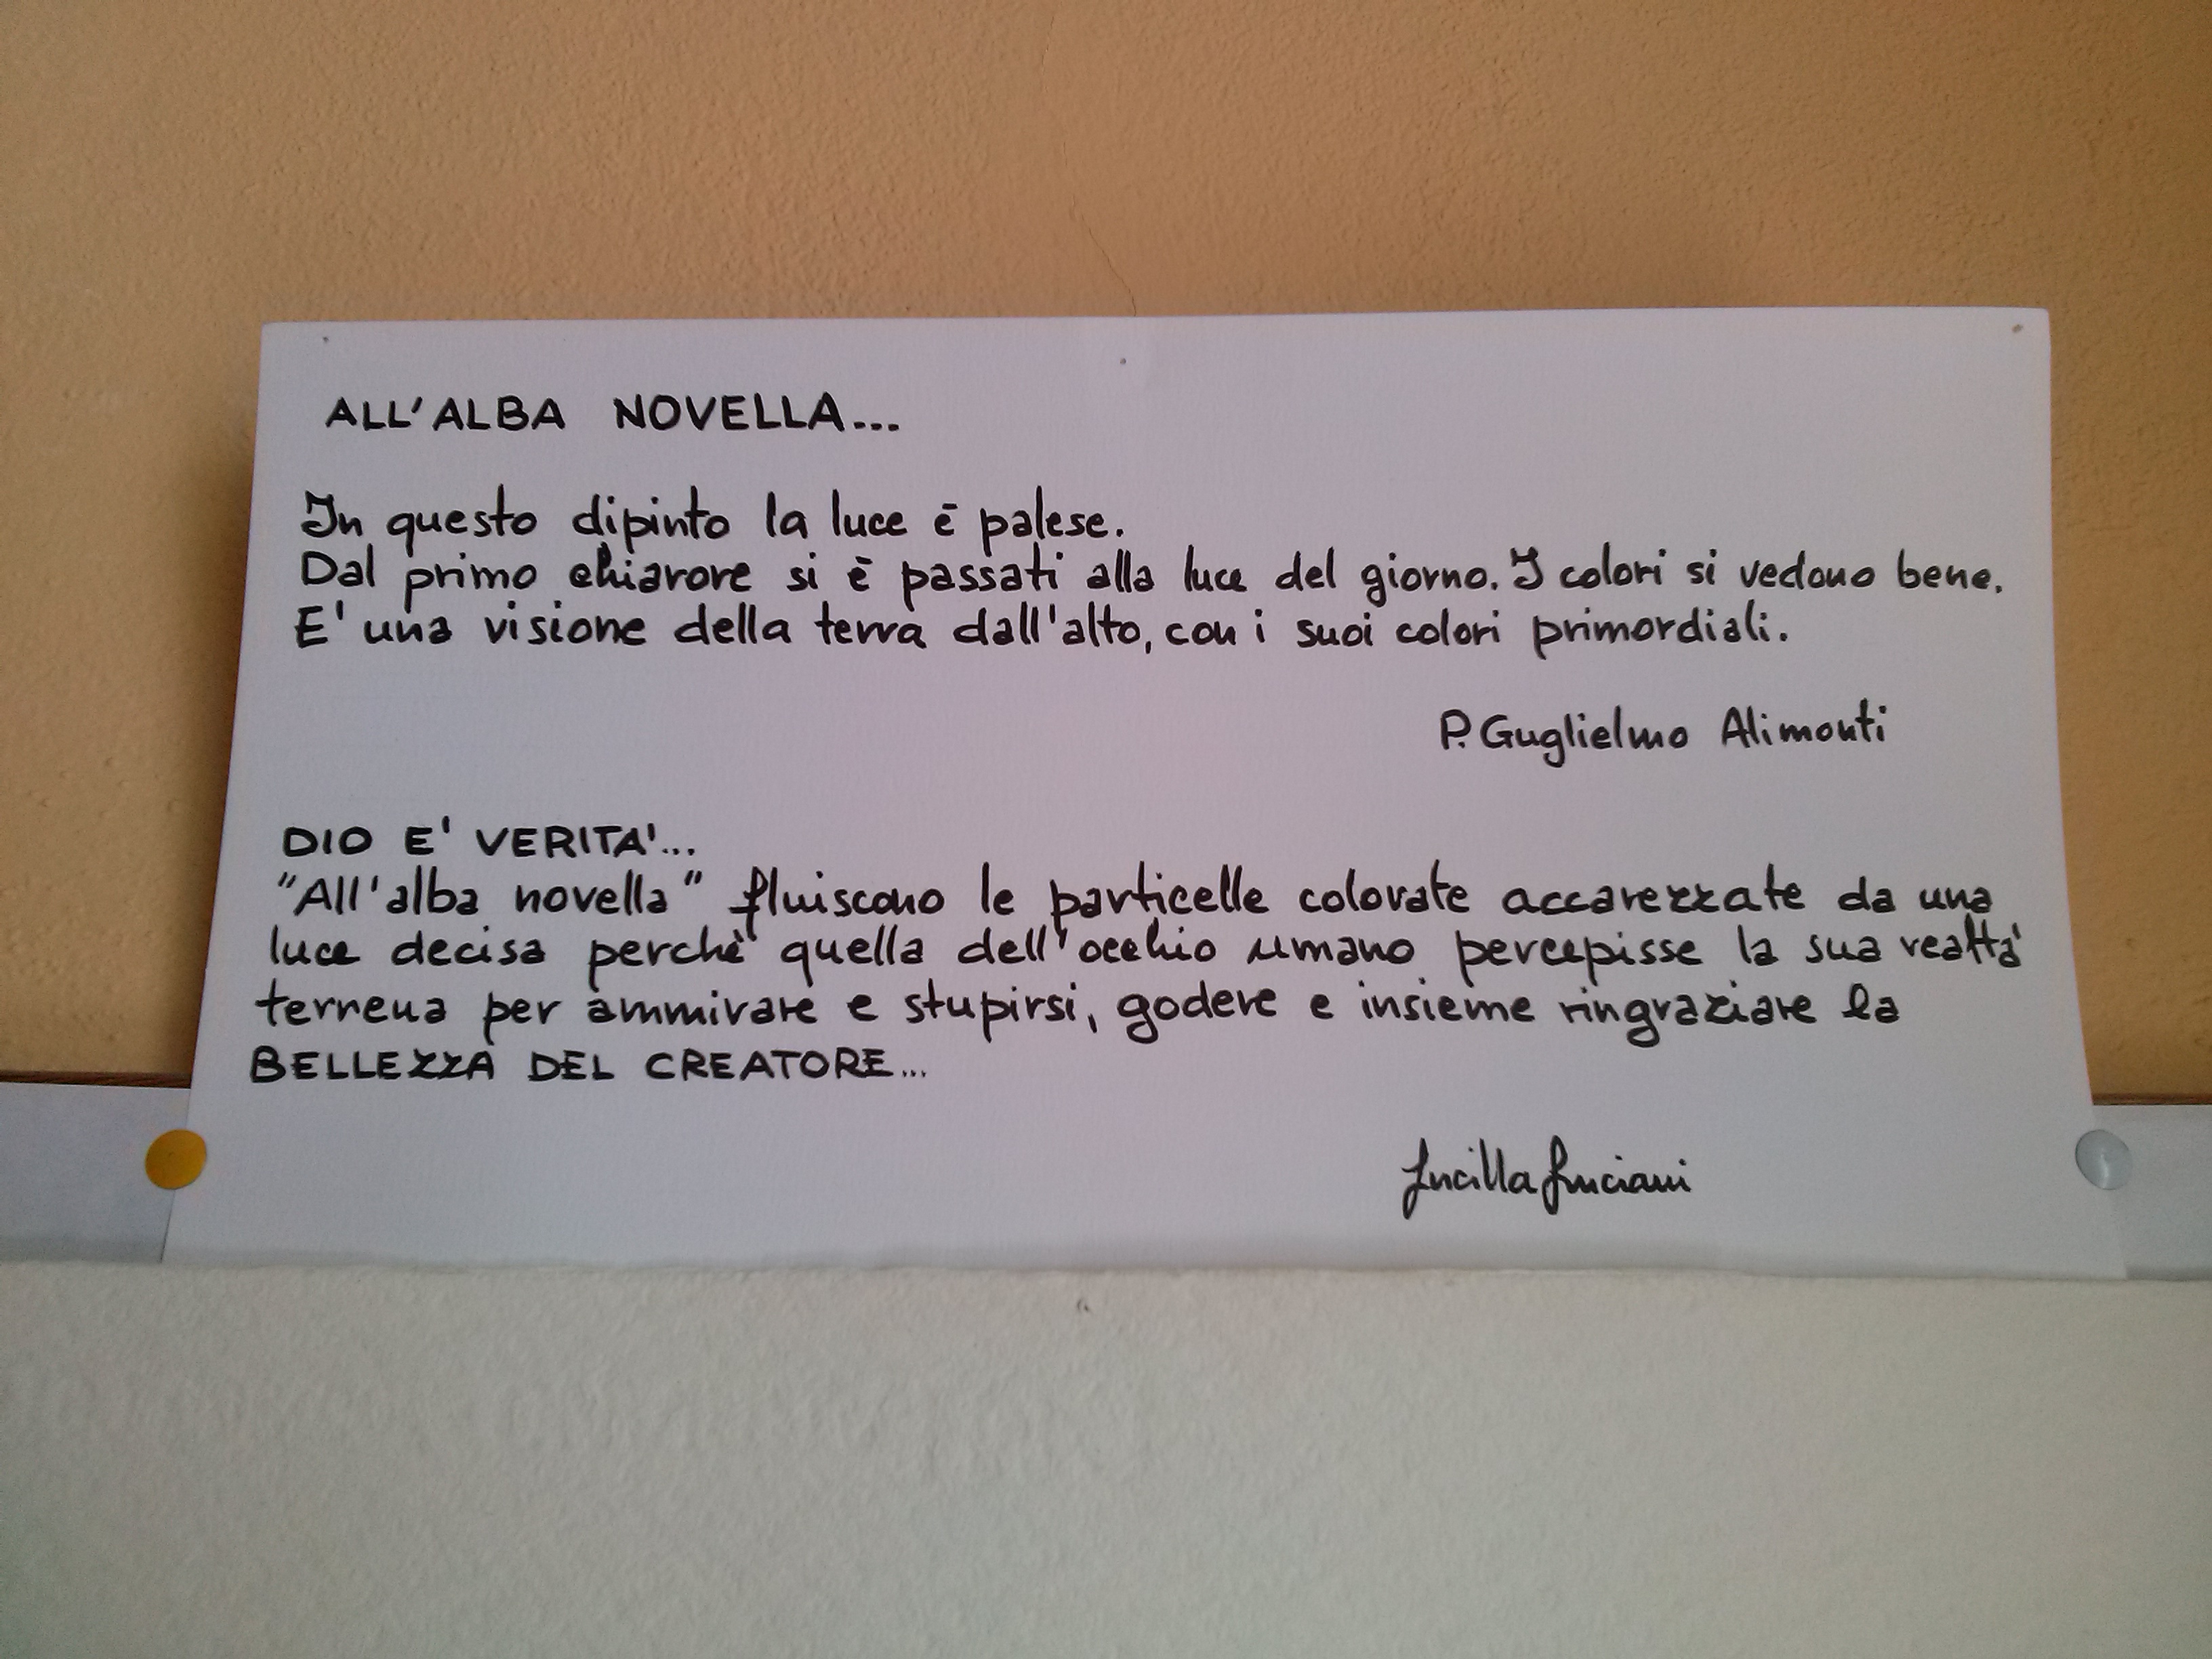 ALL'ALBA NOVELLA...
In questo dipinto la luce è palese.
Dal primo chiarore si è passati alla luce del giorno. I colori si vedono bene.
E' una visione della terra dall'alto, con i suoi colori primordiali.
P. Guglielmo Alimonti
DIO E' VERITA'...
"All'alba novella" fluiscono le particelle colorate accarezzate da una
luce decisa perchè quella dell'occhio umano percepisse la sua realtà
terrena per ammirare e stupirsi, godere e insieme ringraziare la
BELLEZZA DEL CREATORE...
Lucilla Luciani